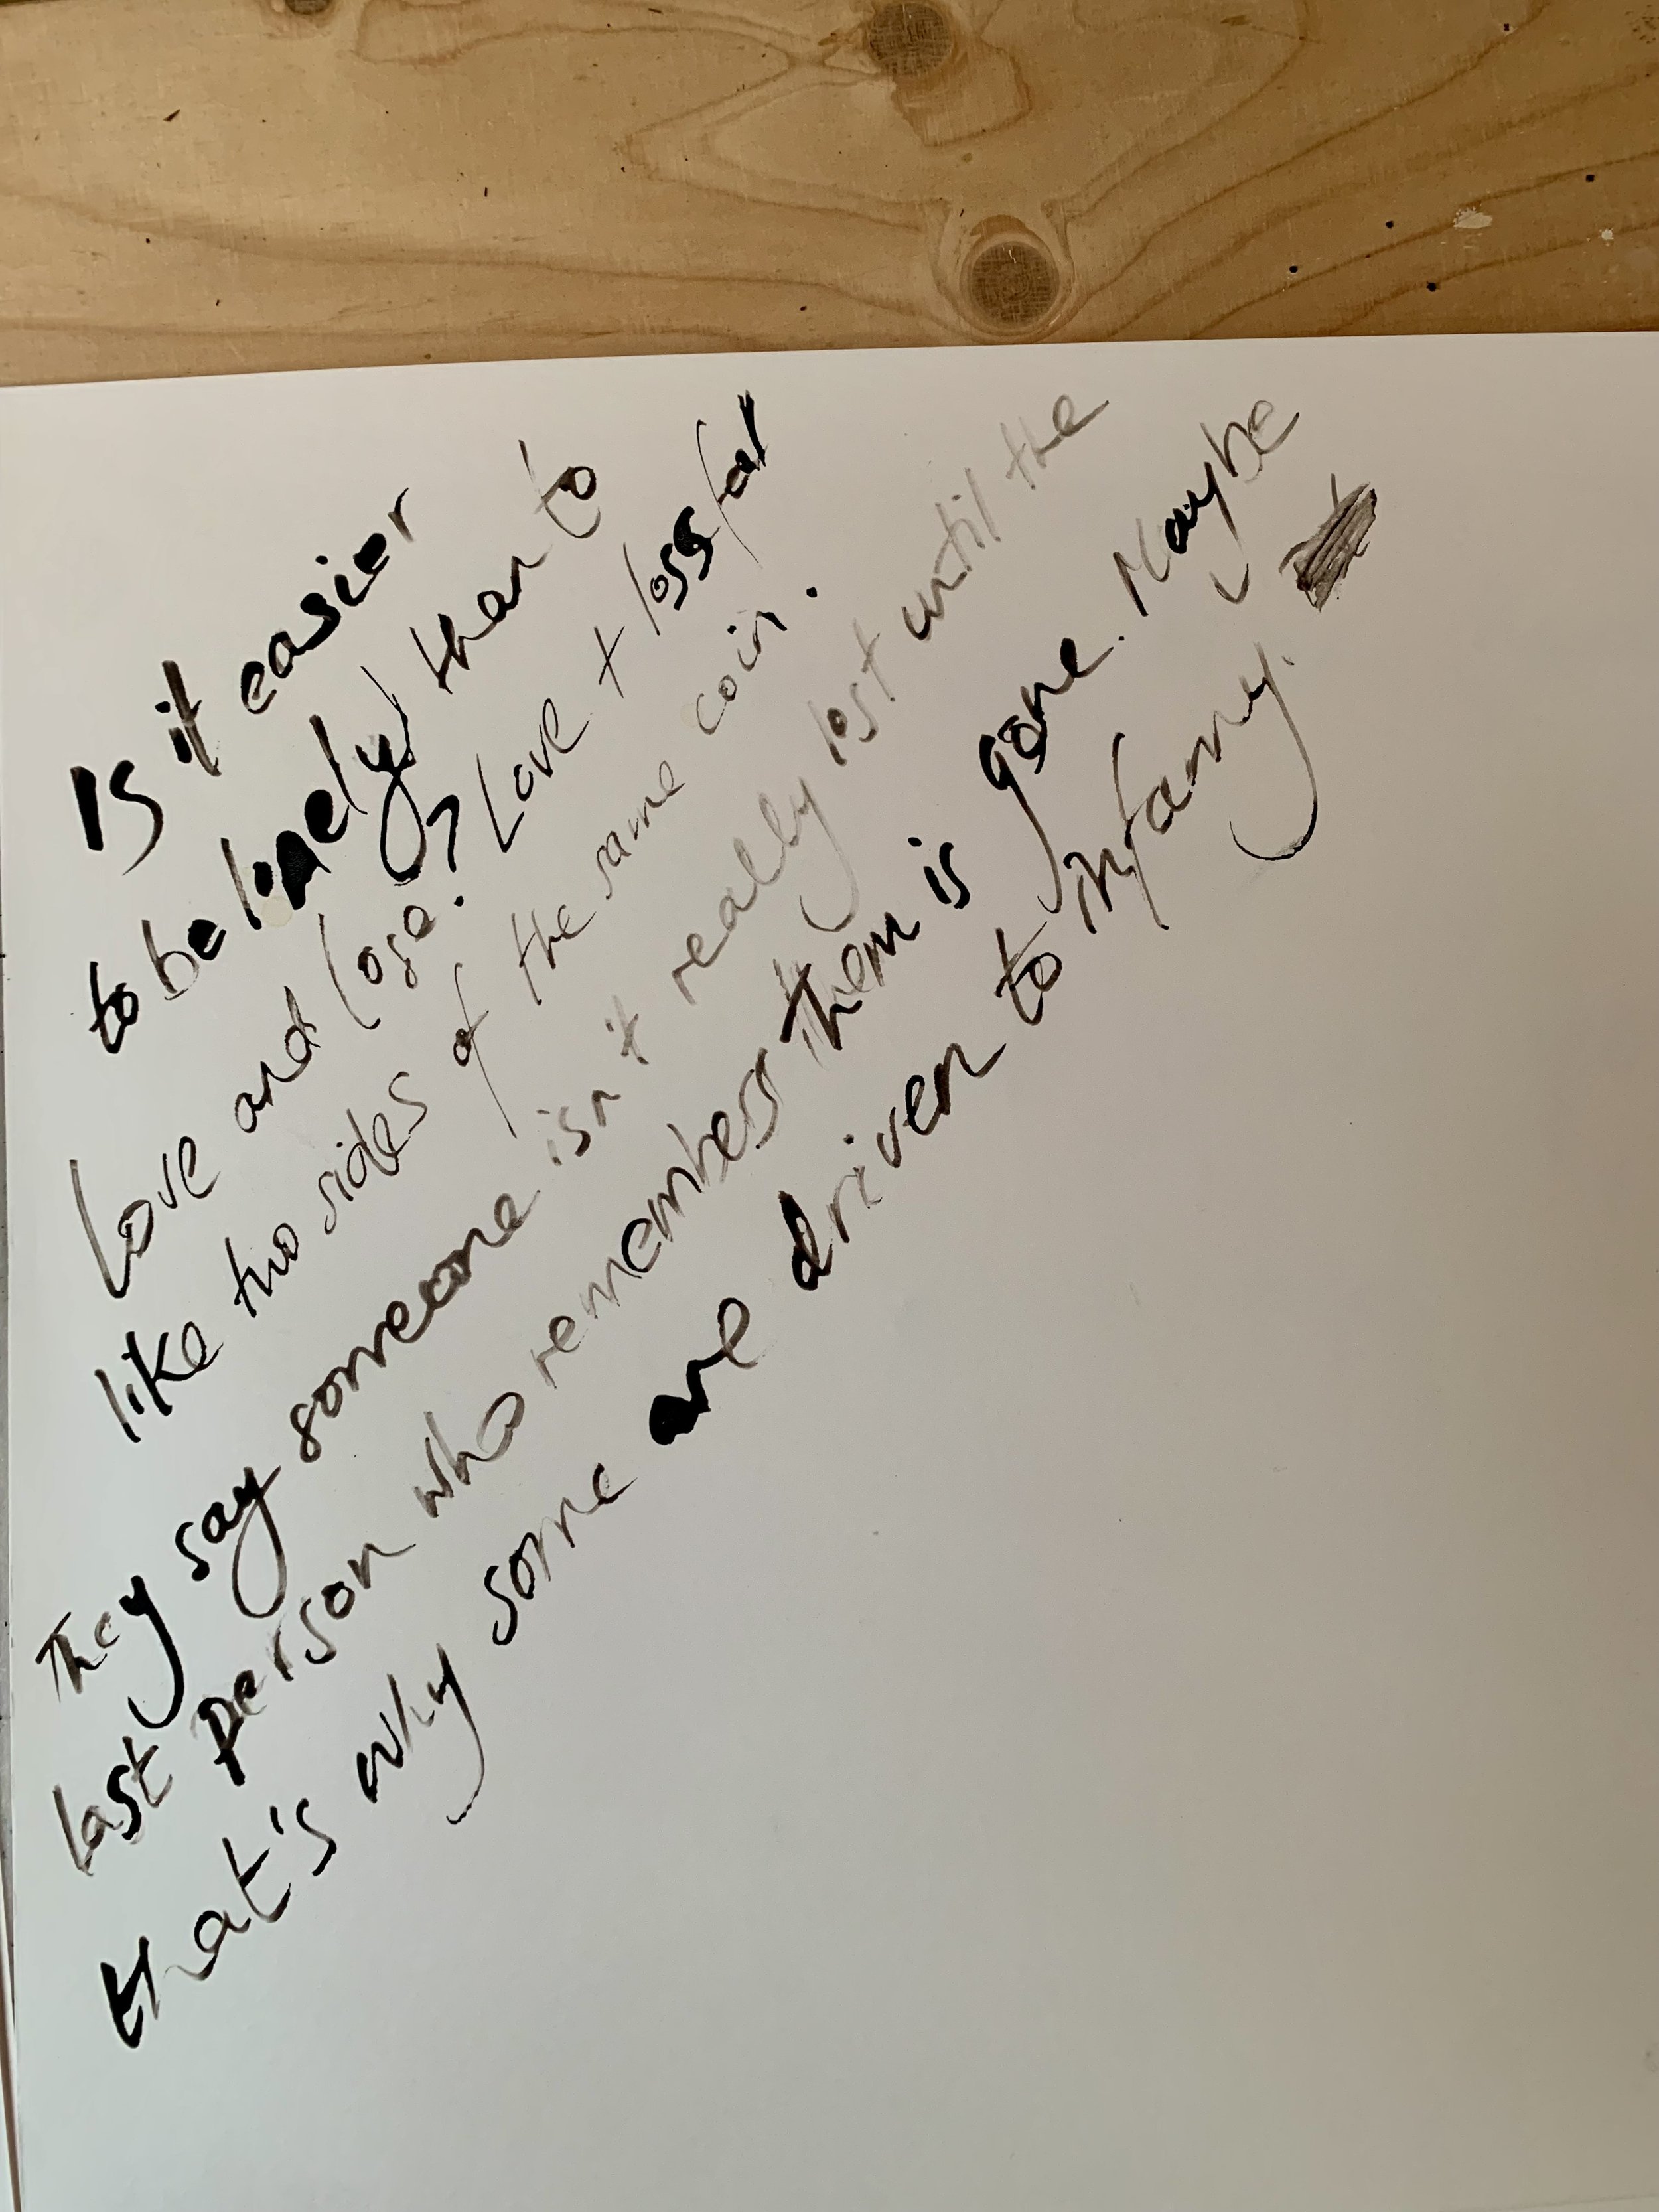 Is it easier
to be linely than to
Love and lose? Love + loss fall
like two sides of the same coin.
They say someone isn't really lost until the
last person who remembers them is gone. Maybe
that's why some are driven to infamy.